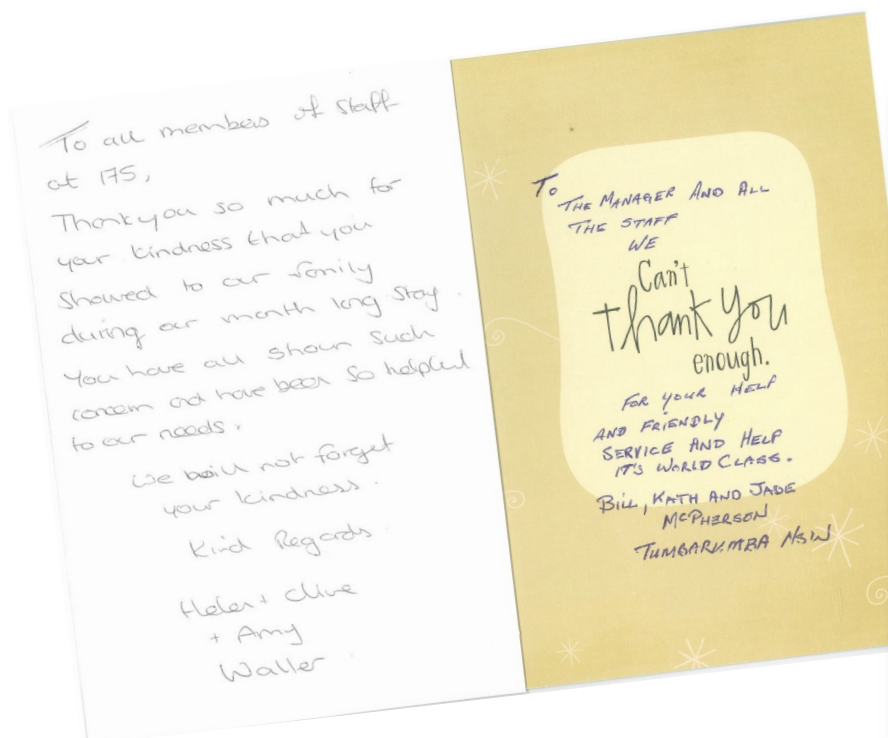 To all members of staff
at 175,
Thankyou so much for
your kindness that you
showed to our family
during our month long stay.
You have all shown such
concern and have been so helpful
to our needs.
We will not forget
your kindness.
Kind Regards
Helen + Clive
+ Amy
Waller
To
THE MANAGER AND ALL
THE STAFF
WE
Can't
thank you
enough.
FOR YOUR HELP
AND FRIENDLY
SERVICE AND HELP
IT'S WORLD CLASS.
BILL, KATH AND JADE
MCPHERSON
TUMBARUMBA NSW